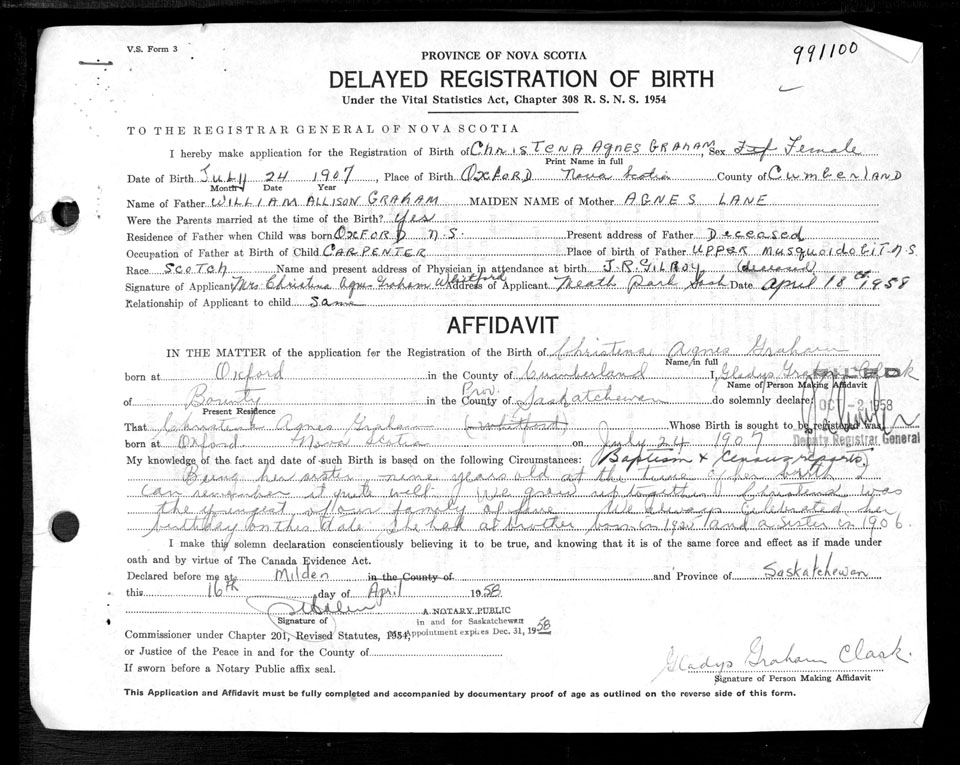 V.S. Form 3
991100
PROVINCE OF NOVA SCOTIA
DELAYED REGISTRATION OF BIRTH
Under the Vital Statistics Act, Chapter 308 R. S. N. S. 1954
TO THE REGISTRAR GENERAL OF NOVA SCOTIA
I hereby make application for the Registration of Birth of CHRISTENA AGNES GRAHAM, Sex Female
Print Name in full
Date of Birth JULY 24 1907, Place of Birth OXFORD Nova Scotia County of CUMBERLAND
Month Date Year
Name of Father WILLIAM ALLISON GRAHAM MAIDEN NAME of Mother AGNES LANE
Were the Parents married at the time of the Birth? Yes
Residence of Father when Child was born OXFORD N.S. Present address of Father Deceased
Occupation of Father at Birth of Child CARPENTER Place of birth of Father UPPER MUSQUOIDOBIT N S
Race SCOTCH Name and present address of Physician in attendance at birth J.R. GILROY (deceased)
Signature of Applicant Mrs. Christina Agnes Graham Whitford Address of Applicant Meath Park Sask Date April 18th 1958
Relationship of Applicant to child Same
AFFIDAVIT
IN THE MATTER of the application for the Registration of the Birth of Christena Agnes Graham
Name in full
born at Oxford in the County of Cumberland I, Gladys Graham Clark
Name of Person Making Affidavit
FILED
of Bounty in the County of Prov. Saskatchewan do solemnly declare:
Present Residence
OCT -2 1958
That Christena Agnes Graham (Whitford) Whose Birth is sought to be registered was
Deputy Registrar General
born at Oxford Nova Scotia on July 24 1907
My knowledge of the fact and date of such Birth is based on the following Circumstances: (Baptism & Census reports)
Being her sister nine years old at the time of her birth I
can remember it quite well. We grew up together. Christena was
the youngest of our family of five. We always celebrated her
birthday on this date. She had a brother born in and a sister in 1906.
I make this solemn declaration conscientiously believing it to be true, and knowing that it is of the same force and effect as if made under
oath and by virtue of The Canada Evidence Act.
Declared before me at Milden in the County of and Province of Saskatchewan
this 16th day of April 1958
Signature of
A NOTARY PUBLIC
in and for Saskatchewan
My Appointment expires Dec. 31, 1958
Commissioner under Chapter 201, Revised Statutes, 1954,
or Justice of the Peace in and for the County of
If sworn before a Notary Public affix seal.
Gladys Graham Clark.
Signature of Person Making Affidavit
This Application and Affidavit must be fully completed and accompanied by documentary proof of age as outlined on the reverse side of this form.